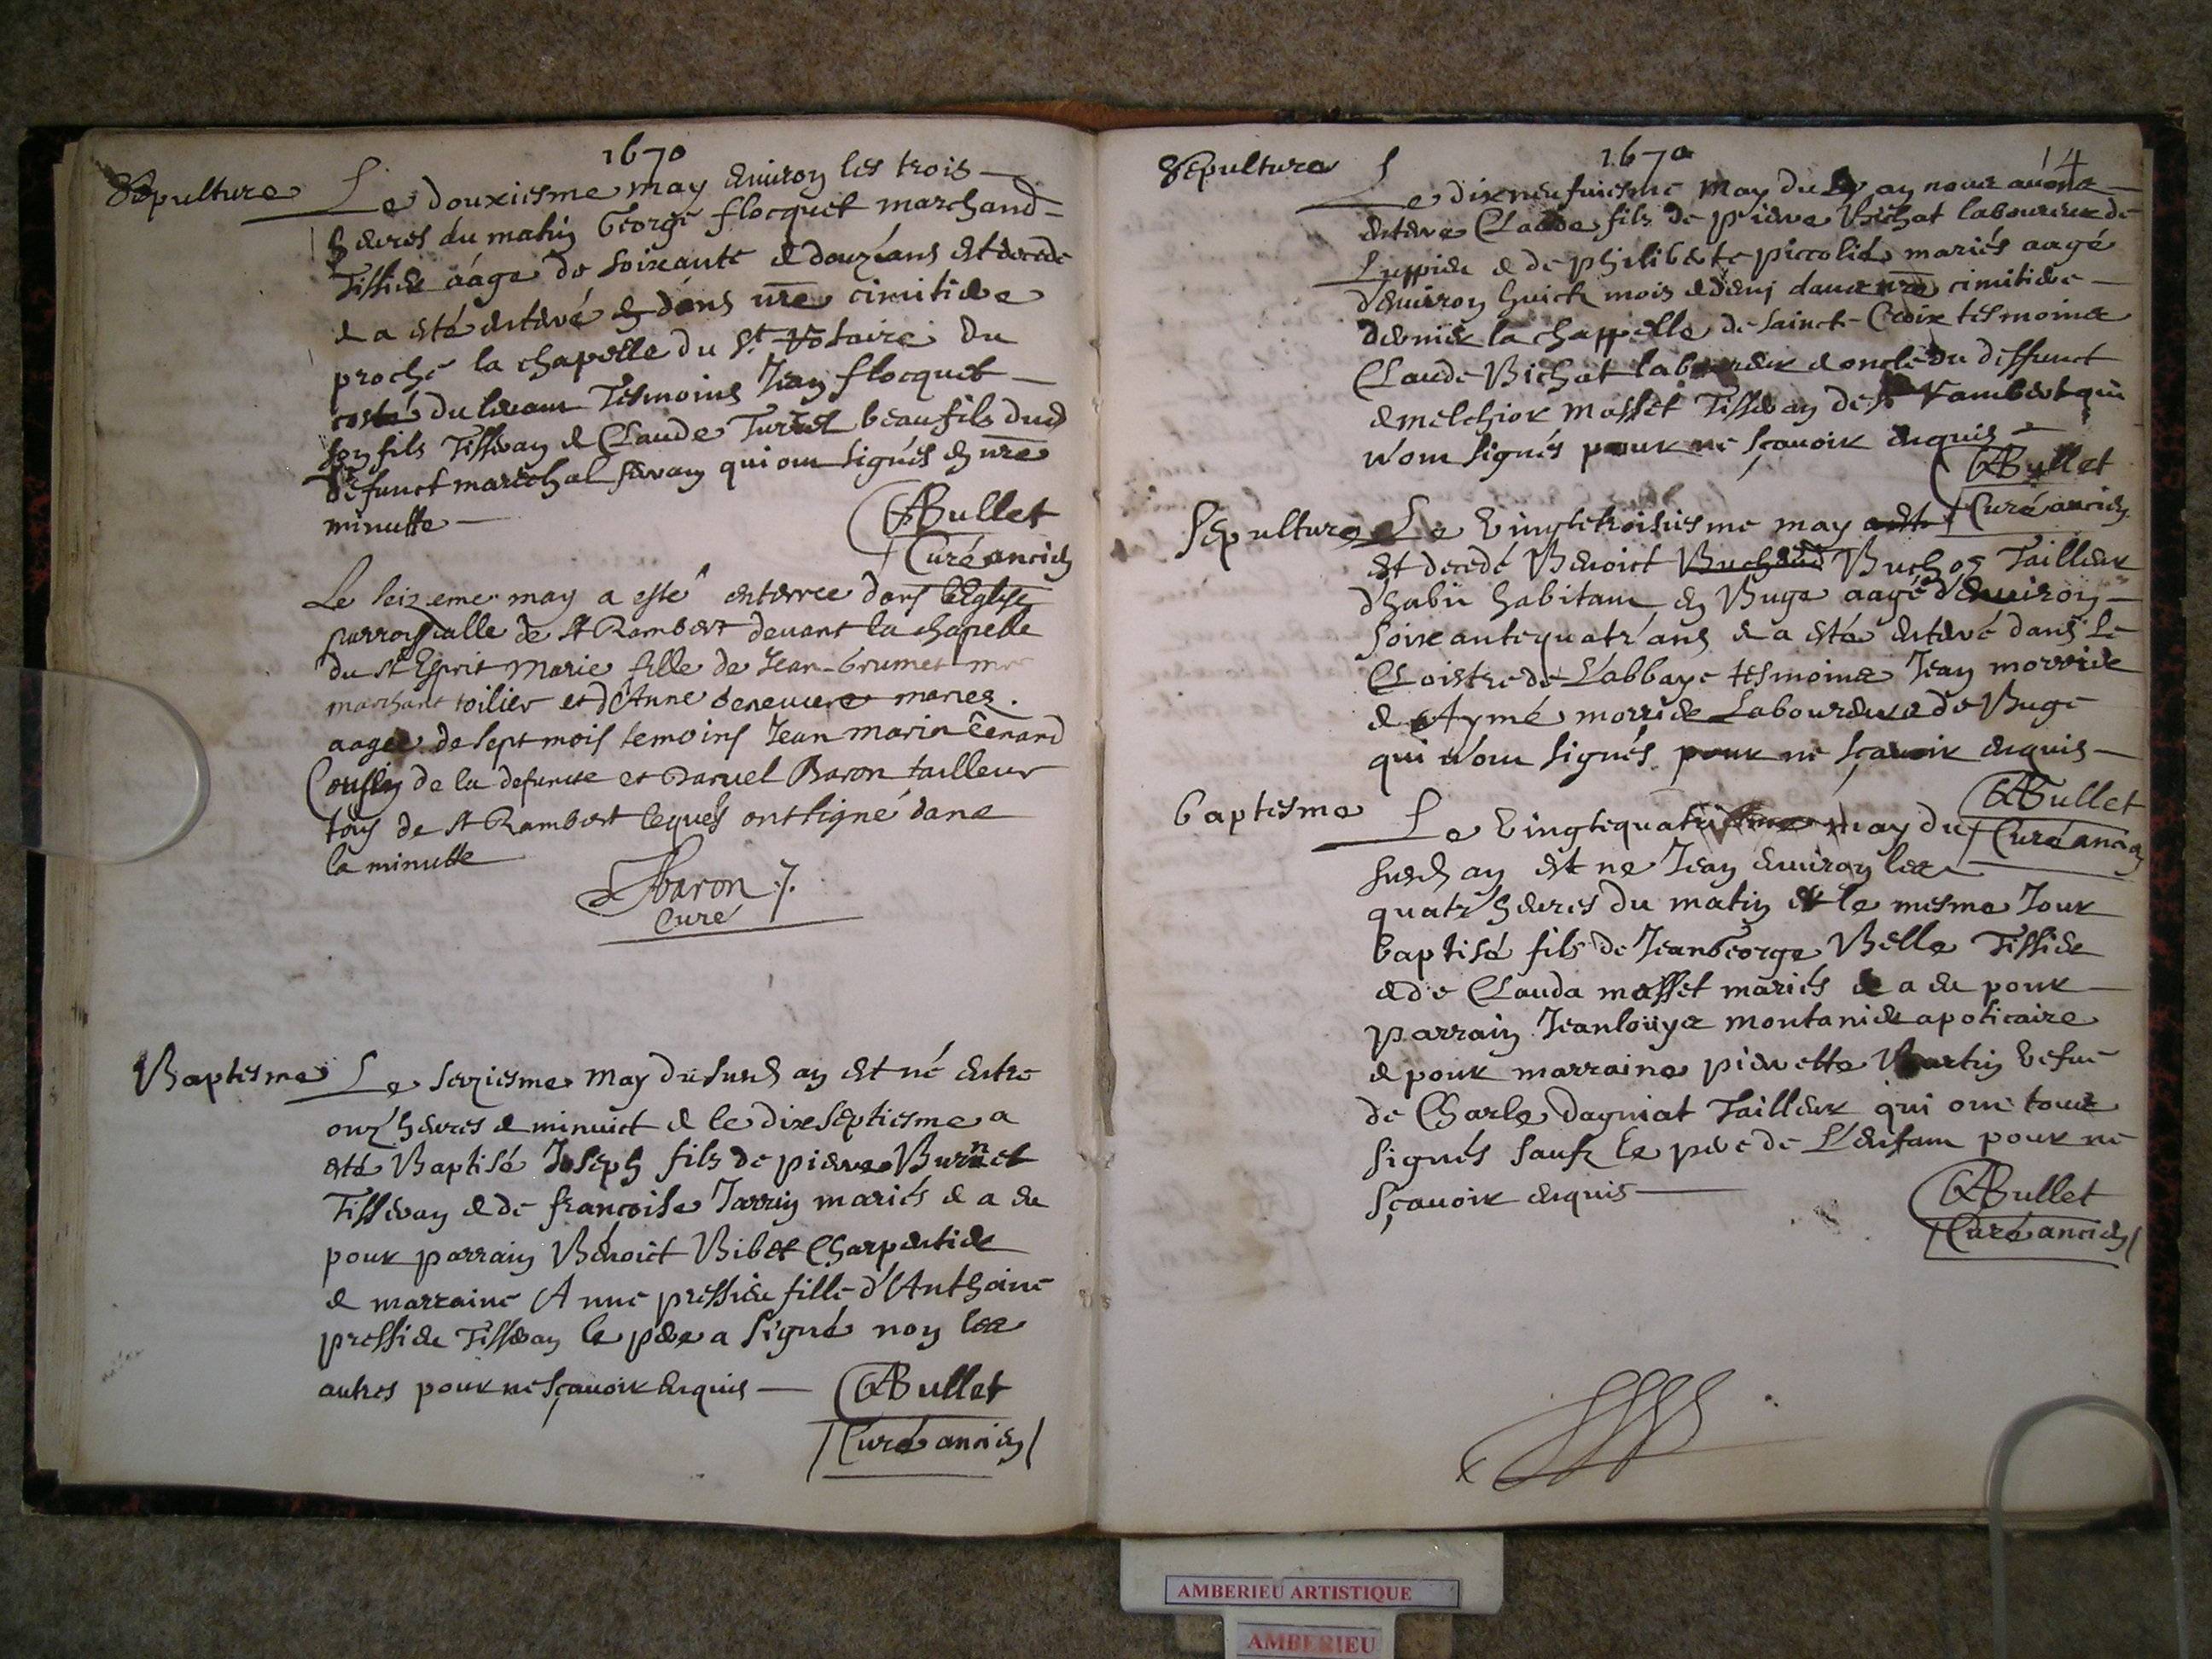 1670
Sepulture
Le douxiesme may environ les trois
heures du matin George flocquet marchand
Tissier aâge de soixante & douz'ans est decedé
& a esté enterré en dans nre cimitiere
proche la chapelle du St. Vosaire du
costé du levant Tesmoins Jean flocquet
son fils Tisseran & Claude Turrel beaufils dud
defunct marechal feran qui ont signés en nre
minutte
ABullet
Curé ancien
Le seizeme may a esté enterree dans l'Eglise
parroissialle de St Rambert devant la chapelle
du St Esprit Marie fille de Jean Grumet
marchant toilier et d'Anne maries.
aagee de sept mois temoins Jean marin
Cousin de la defuncte et Daniel Baron tailleur
tous de St Rambert lequels ont signé dans
la minutte
Baron
Curé
Baptesme
Le seziesme may du susd an est né entre
onz' heures & minuict & le dixseptiesme a
esté Baptisé Joseph fils de pierre Burnet
Tisseran & de francoise Jarrin mariés & a eu
pour parrain Benoict Bibet Charpentier
& marraine Anne pressieu fille d'Anthoine
pressieu Tisseran le pere a signé non les
autres pour ne sçavoir enquis
ABullet
Curé ancien
1670
14
Sepulture
Le dixneufviesme may du an nous avons
enterré Claude fils de pierre Bichat laboureur de
Luppieu & de philiberte piccolié mariés aagé
d'environ huict mois & demj dans nre cimitiere
dernier la chappelle de saincte Croix tesmoins
Claude Bichat laboureur & oncle du deffunct
& melchior masset Tisseran de St Rambert qui
n'ont signés pour ne sçavoir enquis
ABullet
Curé ancien
Sepulture
Le vingtetroisiesme may
est decedé Benoict Buchend Buchos Tailleur
d'habit habitant en Buge aagé d'environ
soixantequatr'ans & a esté enterré dans le
Cloistre de L'abbaye tesmoins Jean morrier
& Aymé morrier Laboureurs de Buge
qui n'ont signés pour ne sçavoir enquis
ABullet
Curé ancien
baptesme
Le vingtequatriesme may du
susd an est ne Jean environ les
quatr' heures du matin & le mesme Jour
baptisé fils de Jean George Belle Tissier
& de Clauda masset mariés & a eu pour
parrain Jean louys montanier apoticaire
& pour marraine pierrette Martin vefue
de Charle Dagniat Tailleur qui ont tous
signés sauf le pere de L'enfant pour ne
sçavoir enquis
ABullet
Curé ancien
AMBERIEU ARTISTIQUE
AMBERIEU